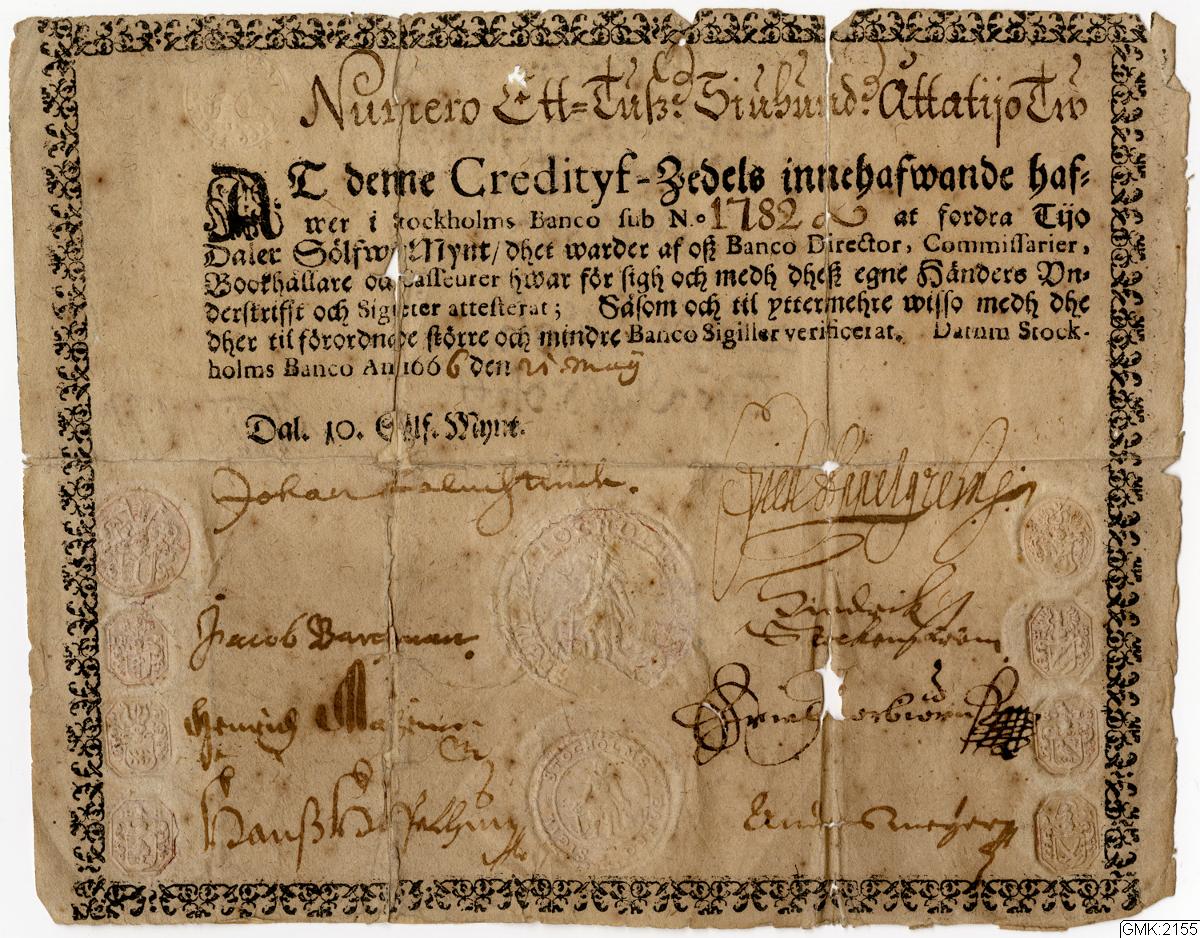 Numero Ett=Tuß: Siuhund: Åttatijo Tw
AT denne Credityf-Zedels innehafwande haf-
wer i Stockholms Banco sub N.o 1782 at fordra Tijo
Daler Sölfwer Mynt/ dhet warder af oß Banco Director, Commissarier,
Bookhållare och Casseurer hwar för sigh och medh dheß egne Händers Vn-
derskrifft och Signeter attesterat; Såsom och til yttermehre wisso medh dhe
dher til förordnade större och mindre Banco Sigiller verificerat. Datum Stock-
holms Banco An 1666 den 21 Maij
Dal. 10. Sölf. Mynt.
Johan
Jacob
Hindrik
Henrich
Hanß
Anders Meijer
STOCKHOLMS
GMK:2155